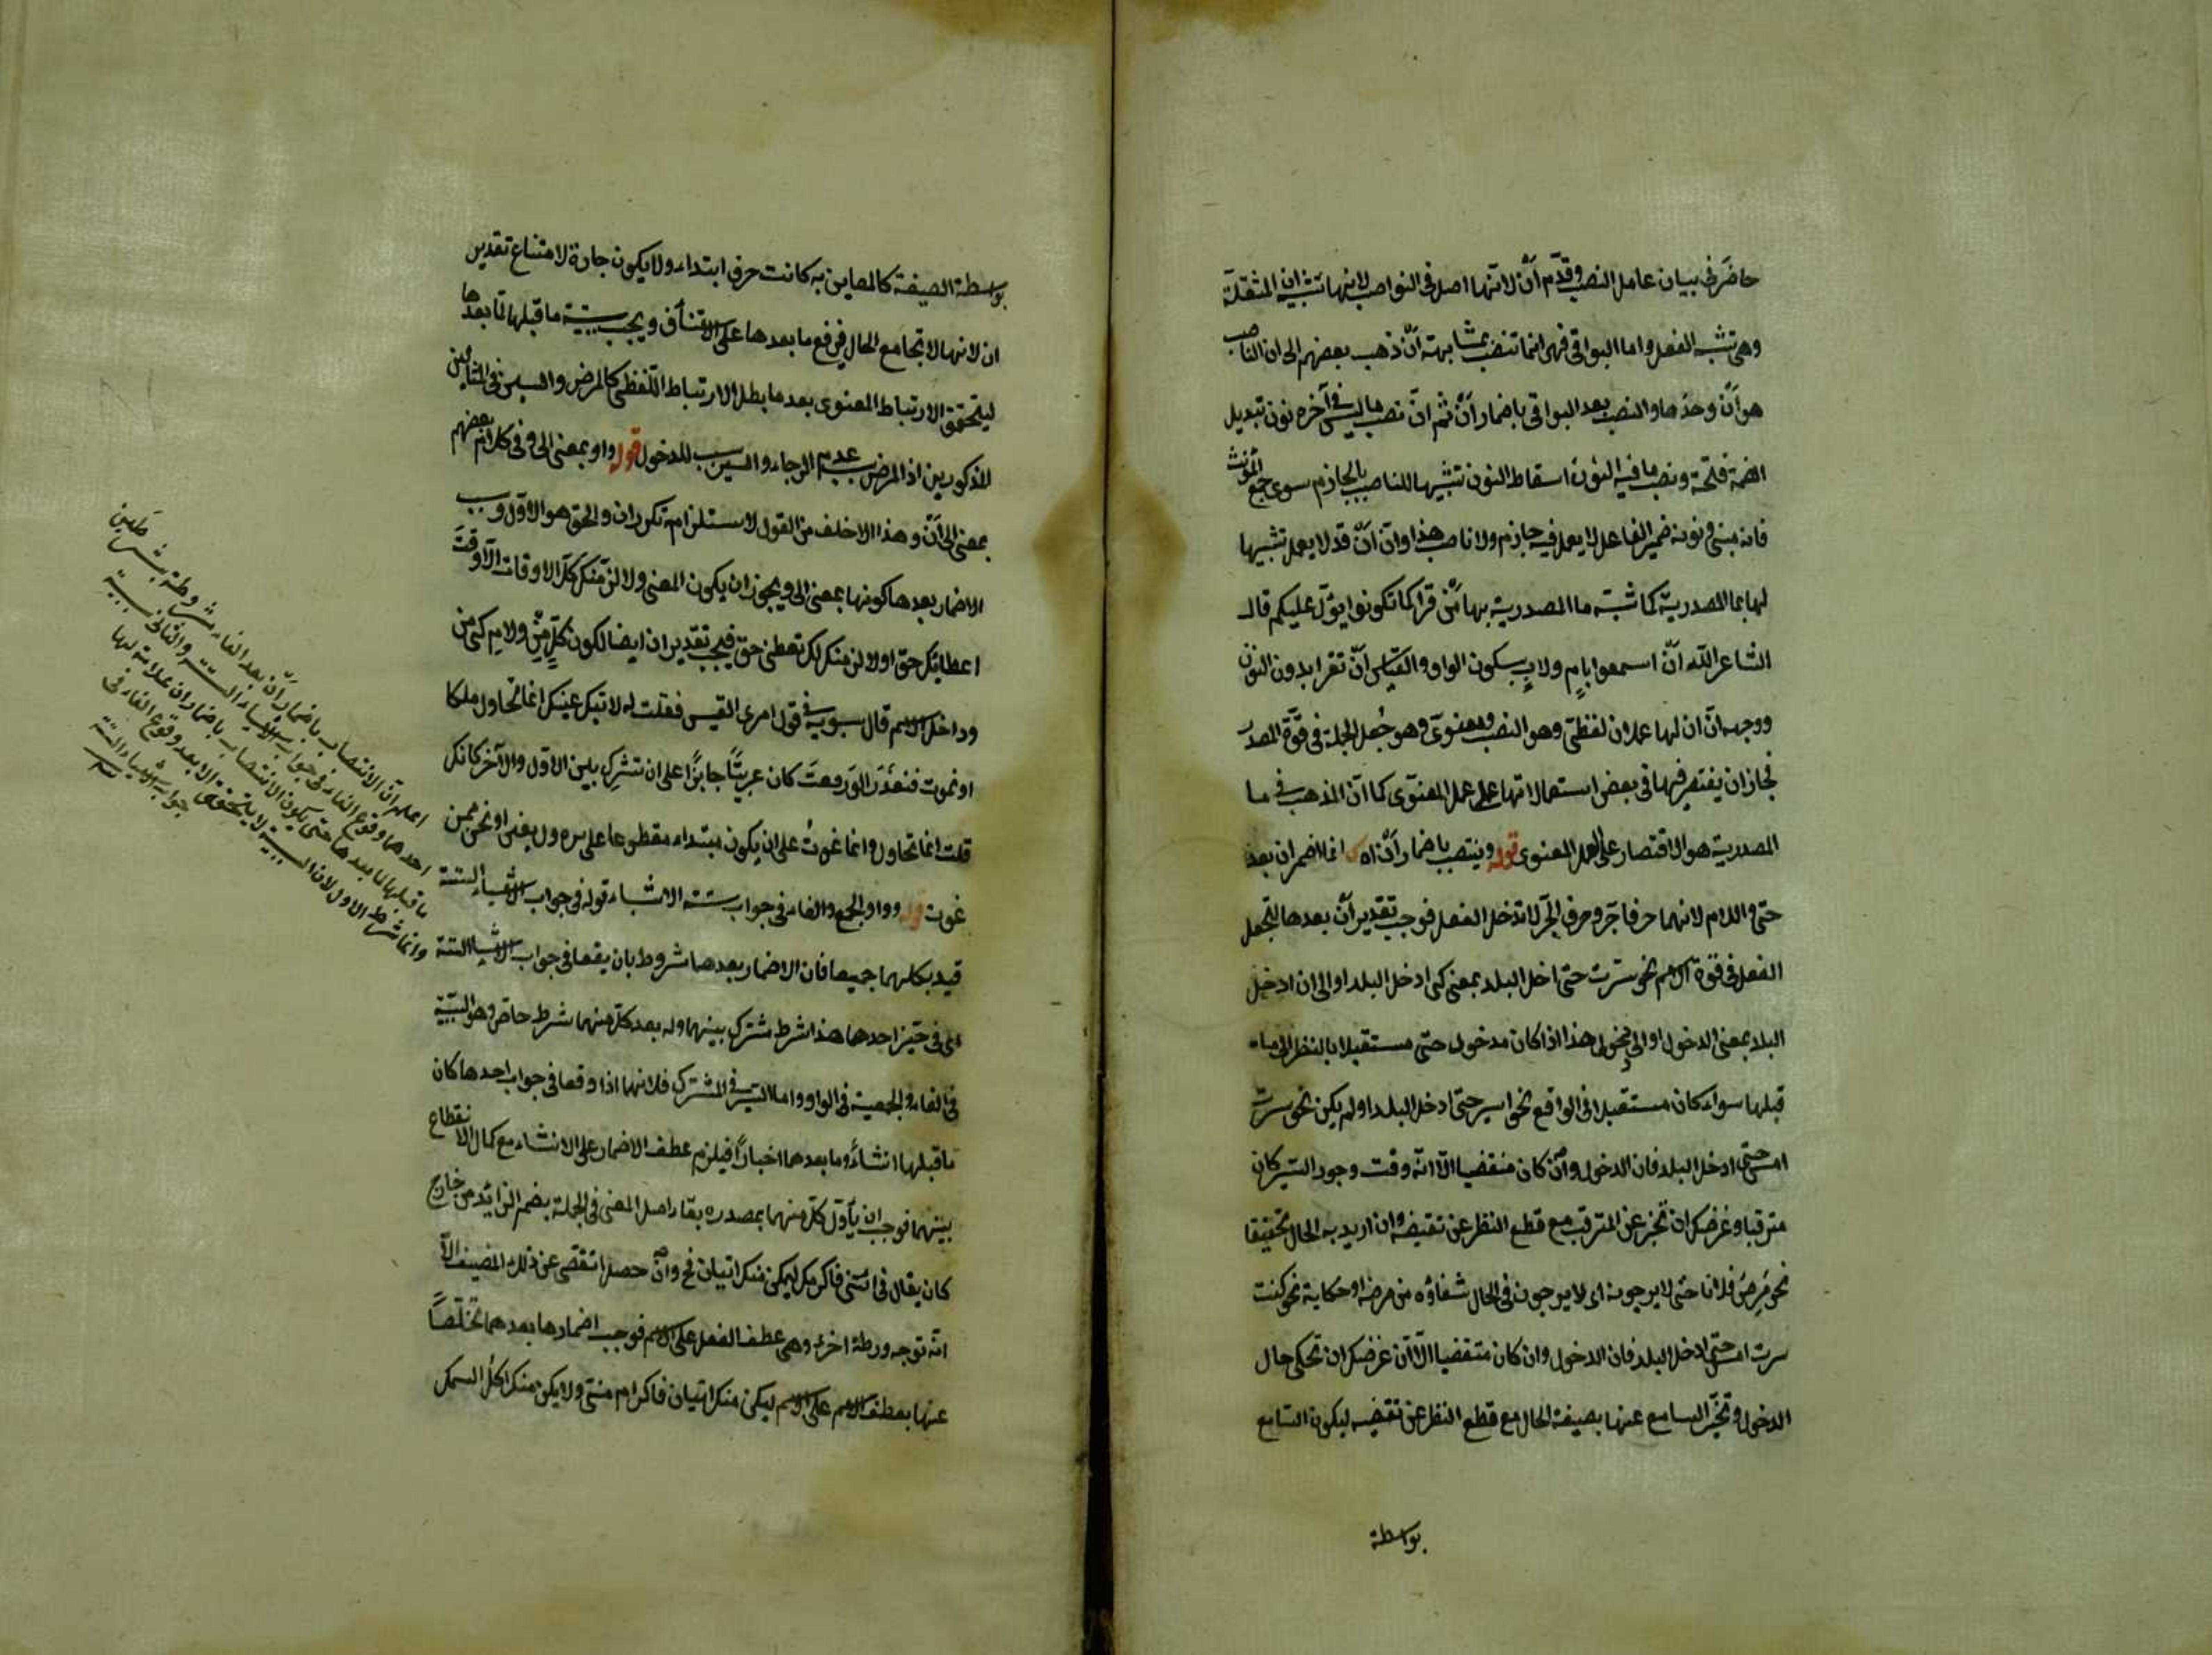 حاضَ في بيان عامل النصب وقدّم أن لانّها اصل في النواصب لانها تشبه ان المثقلة
وهي تشبه الفعل واما البواقي فهي انما تنصب بمشابهته أن ذهب بعضهم الى ان الناصب
هو أن وحدها والنصب بعد البواقي باضمار أن ثم ان نصب ما ليس في آخره نون تبديل
الضمة فتحة ونصب ما فيه النون اسقاط النون تشبيها للناصب بالجازم سوى جمع المؤنث
فانه مبني ونونه ضمير الفاعل لا يعمل فيه جازم ولا ناصب هذا وانّ أن قد لا يعمل تشبيها
لها بما المصدرية كما شبّه ما المصدرية بها من قرا كما تكونوا يولّ عليكم قال
الشاعر الله أن اسمعوا بسكون الواو والقياس أن تقرا بدون النون
ووجهه أن ان لها عملان لفظي وهو النصب ومعنوي وهو جعل الجملة في قوة المصدر
فجاز ان يقتصر فيها في بعض استعمالاتها على عمل المعنوي كما ان المذهب في ما
المصدرية هو الاقتصار على العمل المعنوي قوله وينتصب باضمار أن اه انما اضمر ان بعد
حتى واللام لانهما حرفا جر وحرف الجر لا تدخل الفعل فوجب تقدير أن بعدها لتجعل
الفعل في قوة الاسم نحو سرت حتى ادخل البلد بمعنى كي ادخل البلد او الى ان ادخل
البلد بمعنى الدخول او الى دخولي هذا اذا كان مدخول حتى مستقبلا بالنظر الى ما
قبلها سواء كان مستقبلا في الواقع نحو اسير حتى ادخل البلد او لم يكن نحو سرت
امس حتى ادخل البلد فان الدخول وان كان منقضيا الا انه وقت وجود السير كان
مترقبا وغرضك ان تخبر عن المترقب مع قطع النظر عن تقيضه وان اريد به الحال تحقيقا
نحو مرض فلانا حتى لا يرجونه اي لا يرجون في الحال شفاؤه من مرضه او حكاية نحو كنت
سرت امس حتى ادخل البلد فان الدخول وان كان متقضيا الا أن غرضك ان تحكي حال
الدخول وتخبر السامع عنها بصيغة الحال مع قطع النظر عن تقيضه ليكون السامع
بواسطة
بواسطة الصيغة كالمعاين به كانت حرف ابتداء ولا يكون جارة لامتناع تقدير
ان لانها لا تجامع الحال فيرفع ما بعدها على الاستئناف ويجب سببية ما قبلها لما بعدها
ليتحقق الارتباط المعنوي بعد ما بطل الارتباط اللفظي كالمرض والسير في المثالين
المذكورين اذ المرض سبب عدم الرجاء والسير سبب للدخول قوله واو بمعنى الى وفي كلام بعضهم
بمعنى الى أن وهذا الاخلف من القول لاستلزام تكرار ان والحق هو الاول وسبب
الاضمار بعدها كونها بمعنى الى ويجوز ان يكون المعنى ولالزمنك كل الاوقات الا وقت
اعطائك حقي او لالزمنك لكي تعطني حقي فيجب تقدير ان ايضا لكون كل من ولام كي من
دواخل الاسم قال سيبويه في قول امرئ القيس فقلت له لا تبك عينك انما نحاول ملكا
او نموت فنعذر الو رفعت كان عربيا جائزا على ان تشرك بين الاول والآخر كانك
قلت انما نحاول وانما نموت على ان يكون مبتداء مقطوعا عن الاول يعني او نحن ممن
نموت قوله وواو الجمع والفاء في جواب ستة الاشياء قوله في جواب الاشياء الستة
قيد بكليهما جميعا فان الاضمار بعدهما مشروط بان يقعا في جواب الاشياء الستة
اي في حيز احدها هذا شرط مشترك بينهما وله بعد كل منهما شرط خاص وهو السببية
في الفاء والجمعية في الواو واما السر في المشترك فلانهما اذا وقعا في جواب احدها كان
ما قبلها انشاءً وما بعدهما اخبارًا فيلزم عطف الاخبار على الانشاء مع كمال الانقطاع
بينهما فوجب ان يأول كل منهما بمصدره بقاء اصل المعنى في الجملة بضم الزائد من خارج
كان يقال في ائتني فاكرمك ليكن منك اتيان وان حصل التقصي عن ذلك المضيق الا
انه توجه ورطة اخرى وهي عطف الفعل على الاسم فوجب اضمارها بعدهما تخلصًا
عنها بعطف الاسم على الاسم ليكن منك اتيان فاكرام مني ولا يكن منك اكل السمك
اعلم ان الانتصاب باضمار أن بعد الفاء مشروطة بشرطين
احدهما وقوع الفاء في جواب الاشياء الستة والثاني سببية
ما قبلها لما بعدها حتى يكون الانتصاب باضمار ان علامة لها
وانما شرط الاول لان السببية لا يتحقق الا بعد وقوع الفاء في
جواب الاشياء الستة